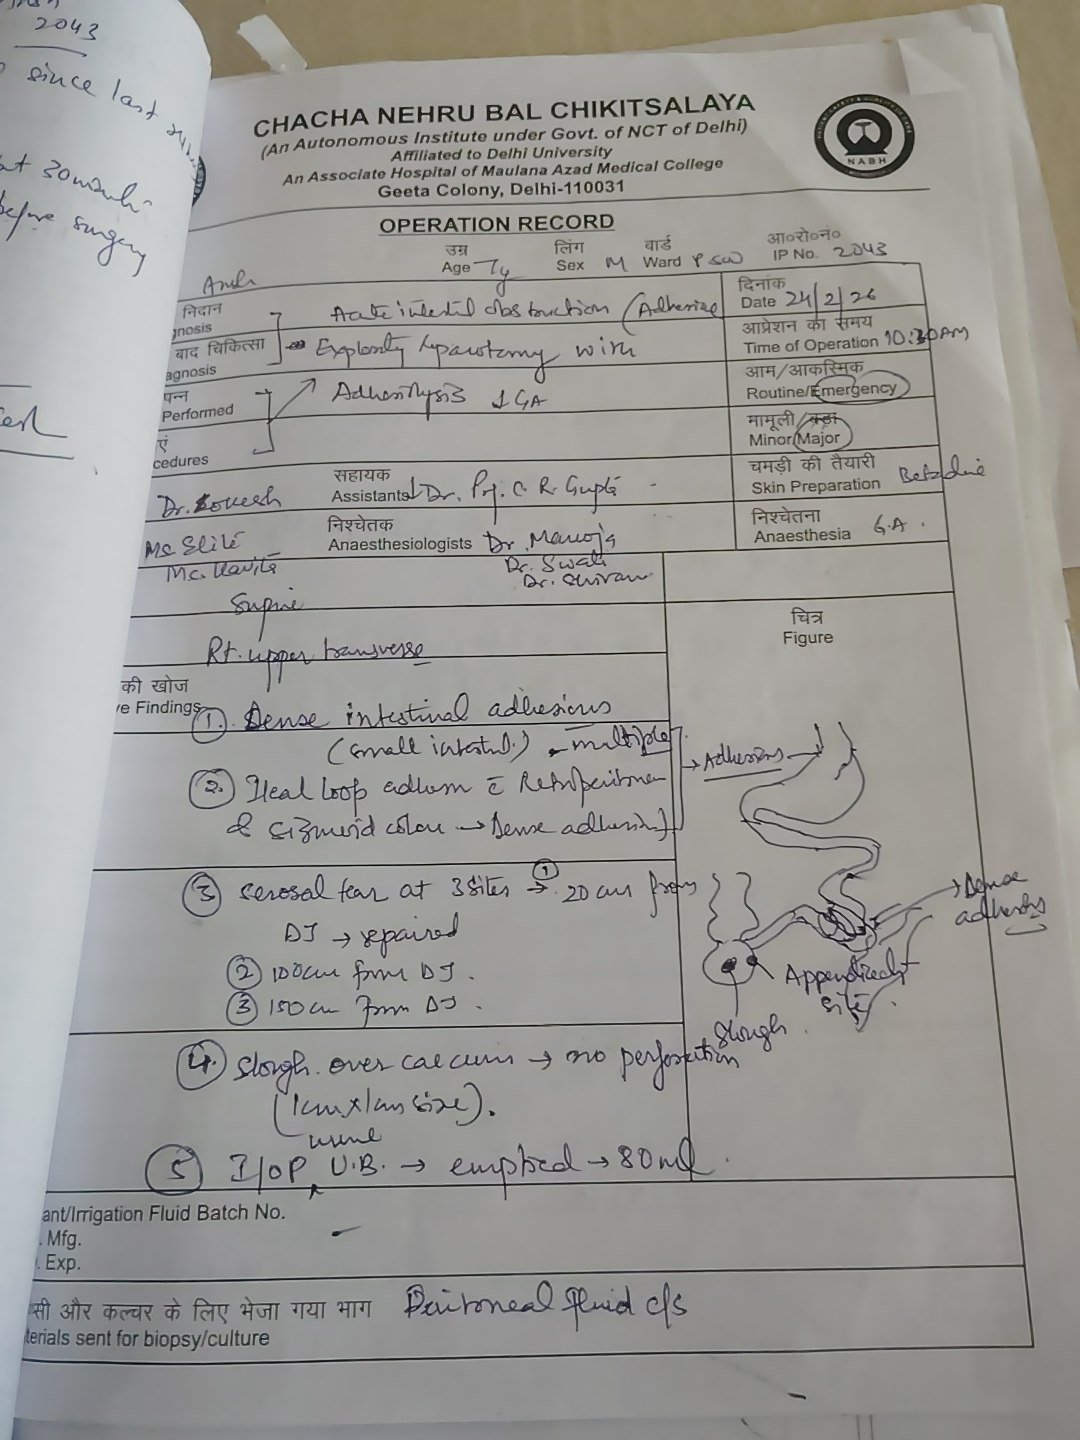 2043
since last
30
before surgery
CHACHA NEHRU BAL CHIKITSALAYA
(An Autonomous Institute under Govt. of NCT of Delhi)
Affiliated to Delhi University
An Associate Hospital of Maulana Azad Medical College
Geeta Colony, Delhi-110031
NABH
OPERATION RECORD
उम्र लिंग वार्ड आ०रो०नं०
Age 7y Sex M Ward PSW IP No. 2043
निदान
gnosis
Acute intestinal obstruction (Adhesive
दिनांक
Date 24/2/26
बाद चिकित्सा
agnosis
Exploratory laparotomy with
आप्रेशन का समय
Time of Operation 10:30AM
पन्न
Performed
Adhesiolysis GA
आम/आकस्मिक
Routine/Emergency
एं
cedures
मामूली/बड़ा
Minor/Major
Dr.
सहायक
Assistants Dr. Prof. C. R. Gupta
चमड़ी की तैयारी
Skin Preparation Betadine
निश्चेतक
Anaesthesiologists Dr. Manoj
Dr. Swati
Dr.
निश्चेतना
Anaesthesia G.A.
Supine
Rt. upper transverse
चित्र
Figure
की खोज
ve Findings
1. Dense intestinal adhesions
(small intest.) multiple
Adhesions
2. Ileal loop adherent c̄ Retroperitoneum
& sigmoid colon → Dense adhesions
3 serosal tear at 3 sites → 1 20 cm from
DJ → repaired
2 100cm from DJ.
3 150cm from DJ.
Dense
adhesions
Appendicect
site
Slough
4. Slough over caecum → no perforation
(1cm x 1cm size).
5 I/OP urine U.B. → emptied → 80 ml.
ant/Irrigation Fluid Batch No.
. Mfg.
. Exp.
सी और कल्चर के लिए भेजा गया भाग
terials sent for biopsy/culture
Peritoneal fluid c/s